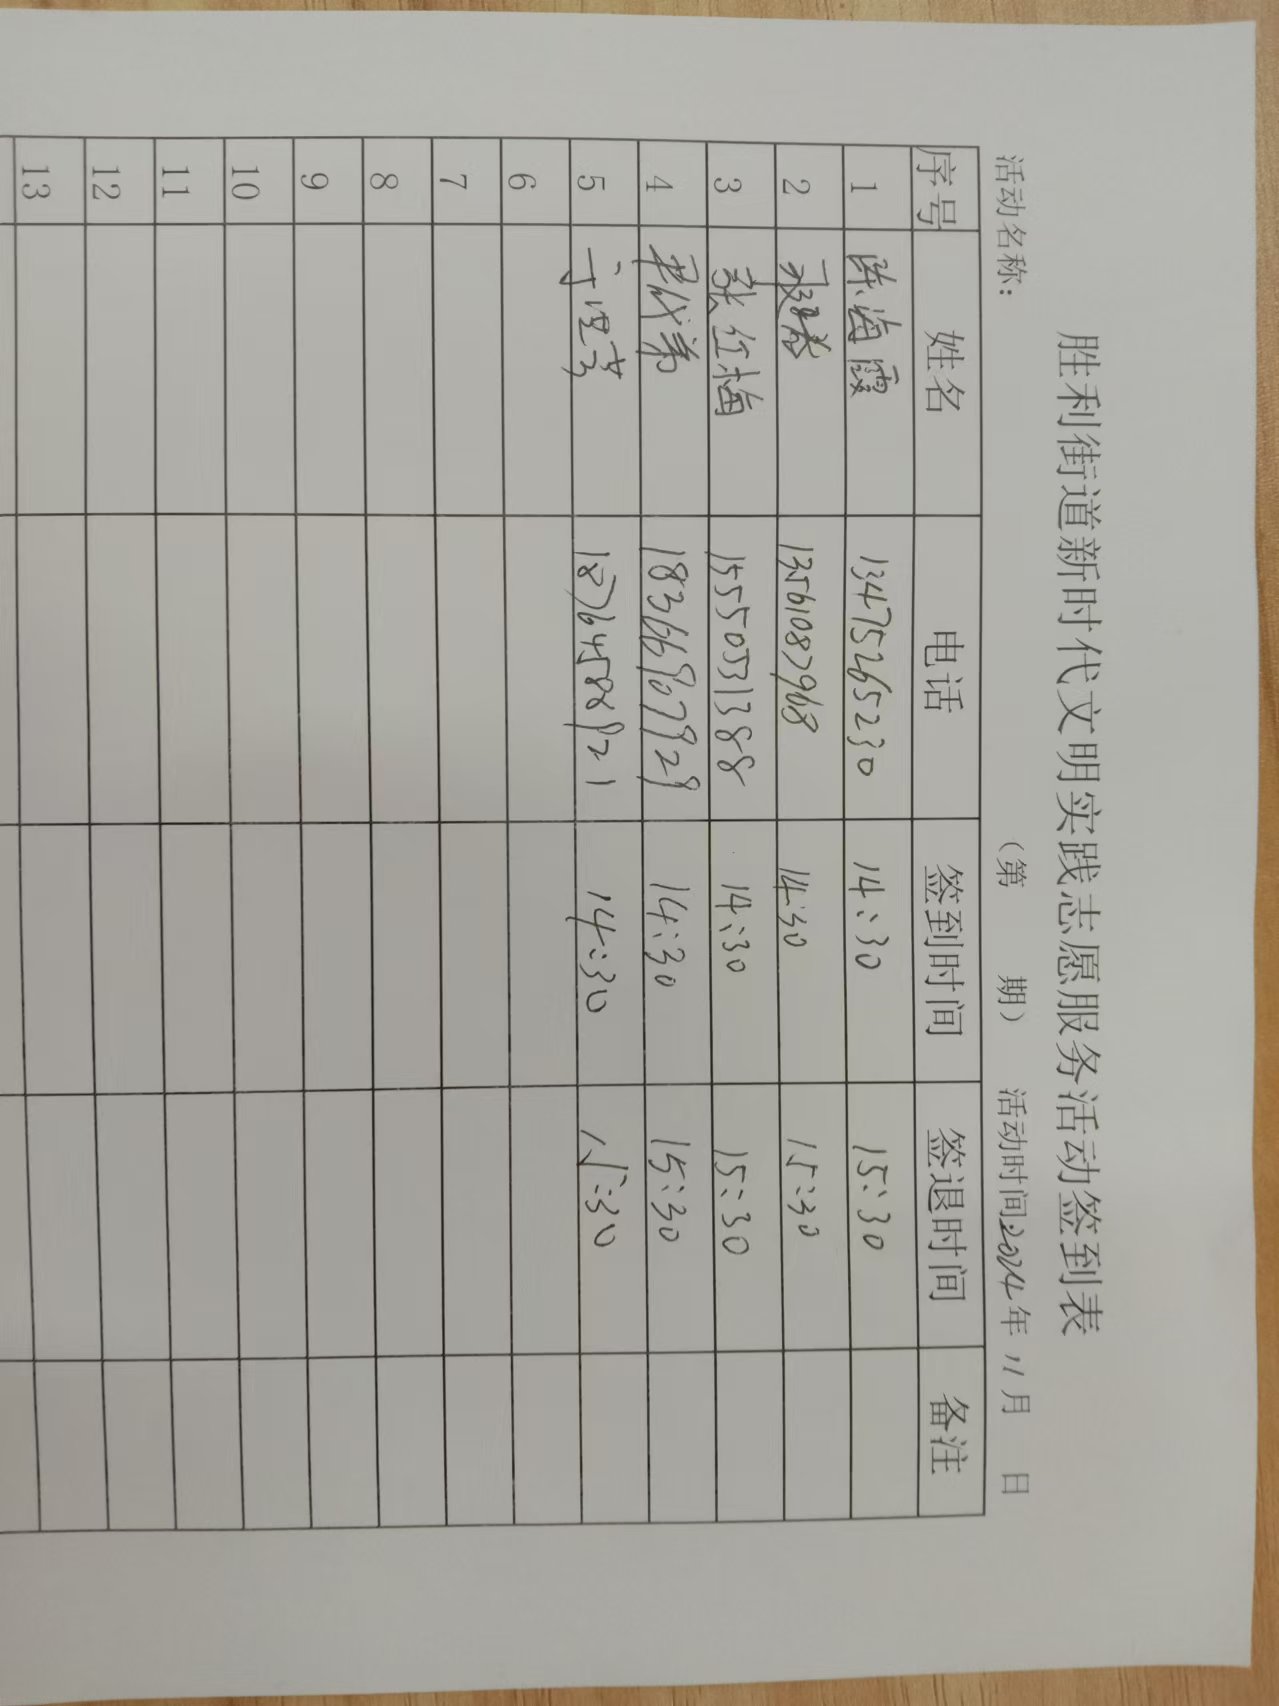 胜利街道新时代文明实践志愿服务活动签到表
活动名称: （第 期） 活动时间:2024年 11月 日
序号 姓名 电话 签到时间 签退时间 备注
1 陈海霞 13475265230 14:30 15:30
2 13561087968 14:30 15:30
3 张红梅 15550531388 14:30 15:30
4 18366967929 14:30 15:30
5 18764588921 14:30 15:30
6
7
8
9
10
11
12
13